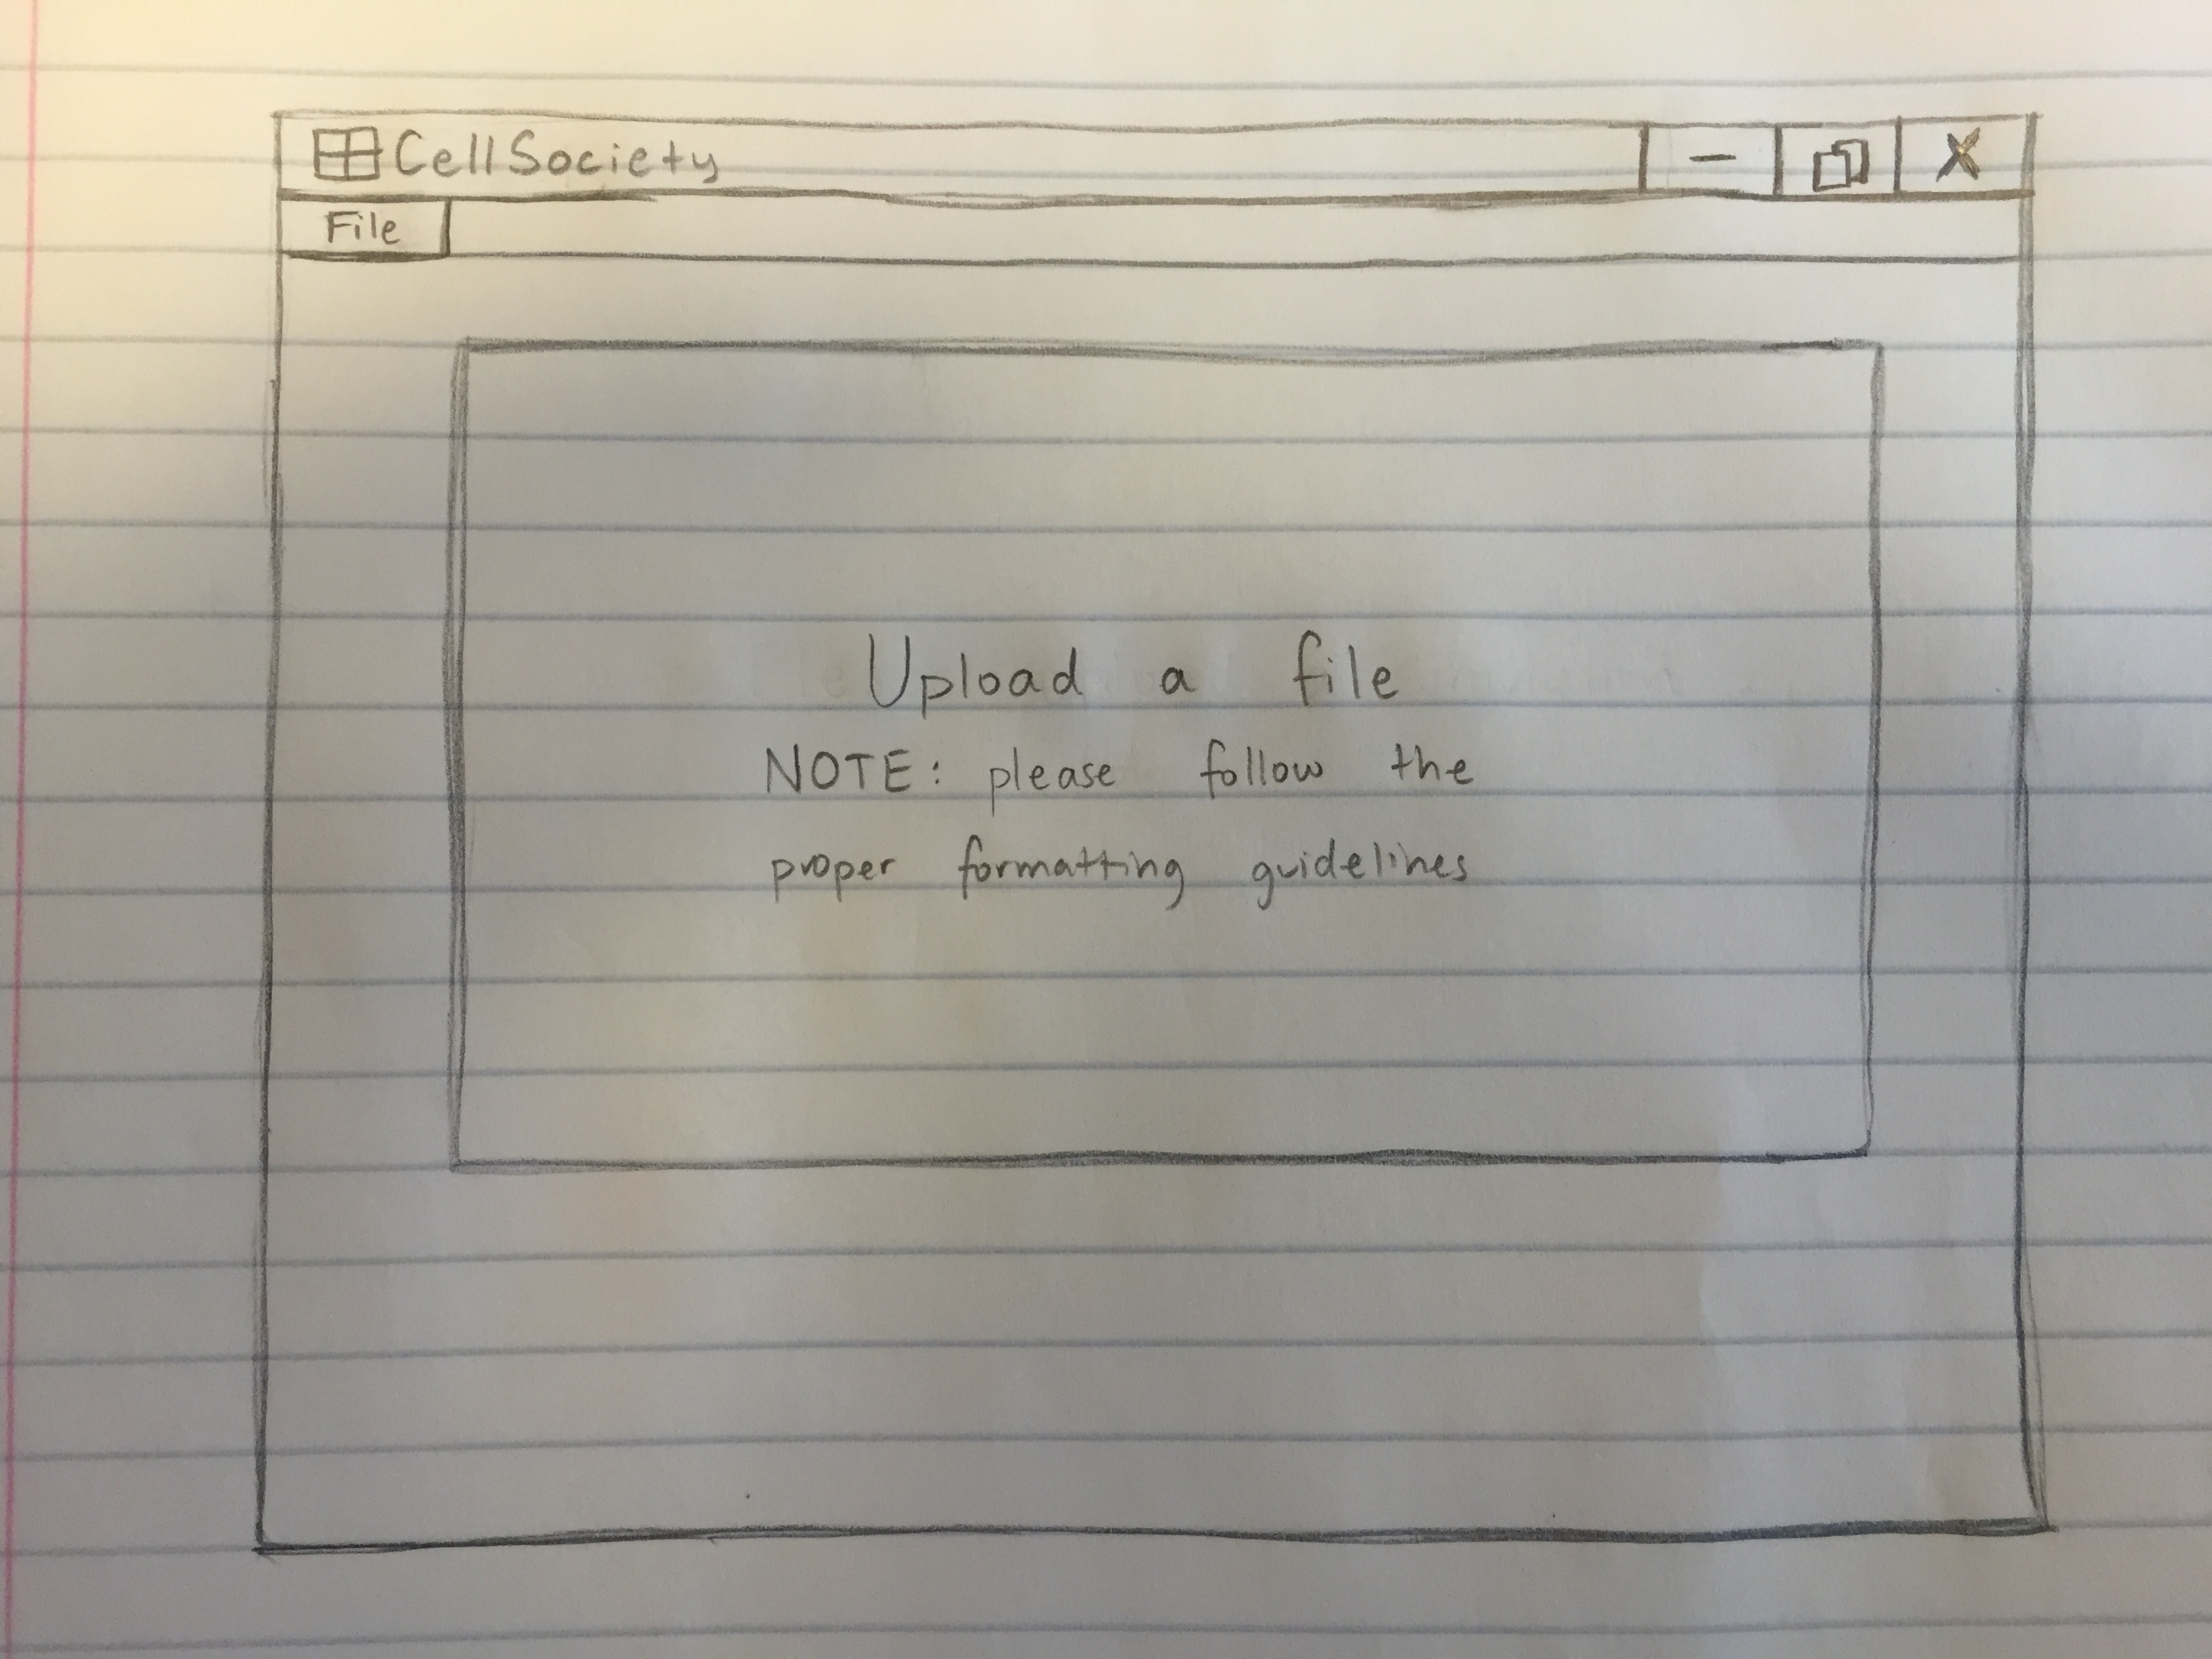 CellSociety
File
Upload a file
NOTE: please follow the
proper formatting guidelines